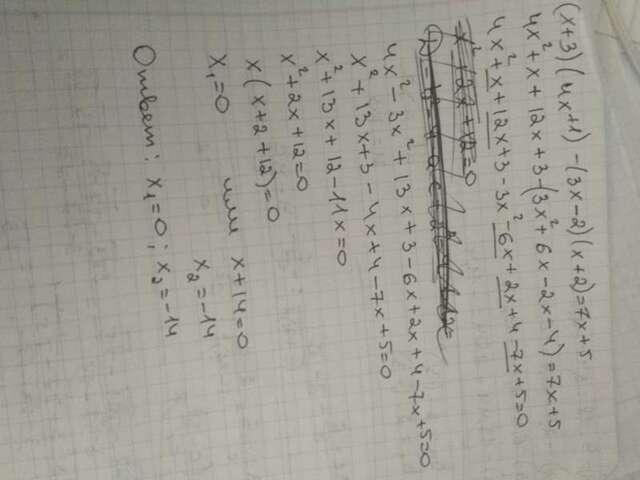 (x+3)(4x+1)-(3x-2)(x+2)=7x+5
4x²+x+12x+3-(3x²+6x-2x-4)=7x+5
4x²+x+12x+3-3x²-6x+2x+4-7x+5=0
x²+2x+12=0
4x²-3x²+13x+3-6x+2x+4-7x+5=0
x²+13x+3-4x+4-7x+5=0
x²+13x+12-11x=0
x²+2x+12=0
x(x+2+12)=0
x₁=0 или x+14=0
x₂=-14
Ответ: x₁=0; x₂=-14